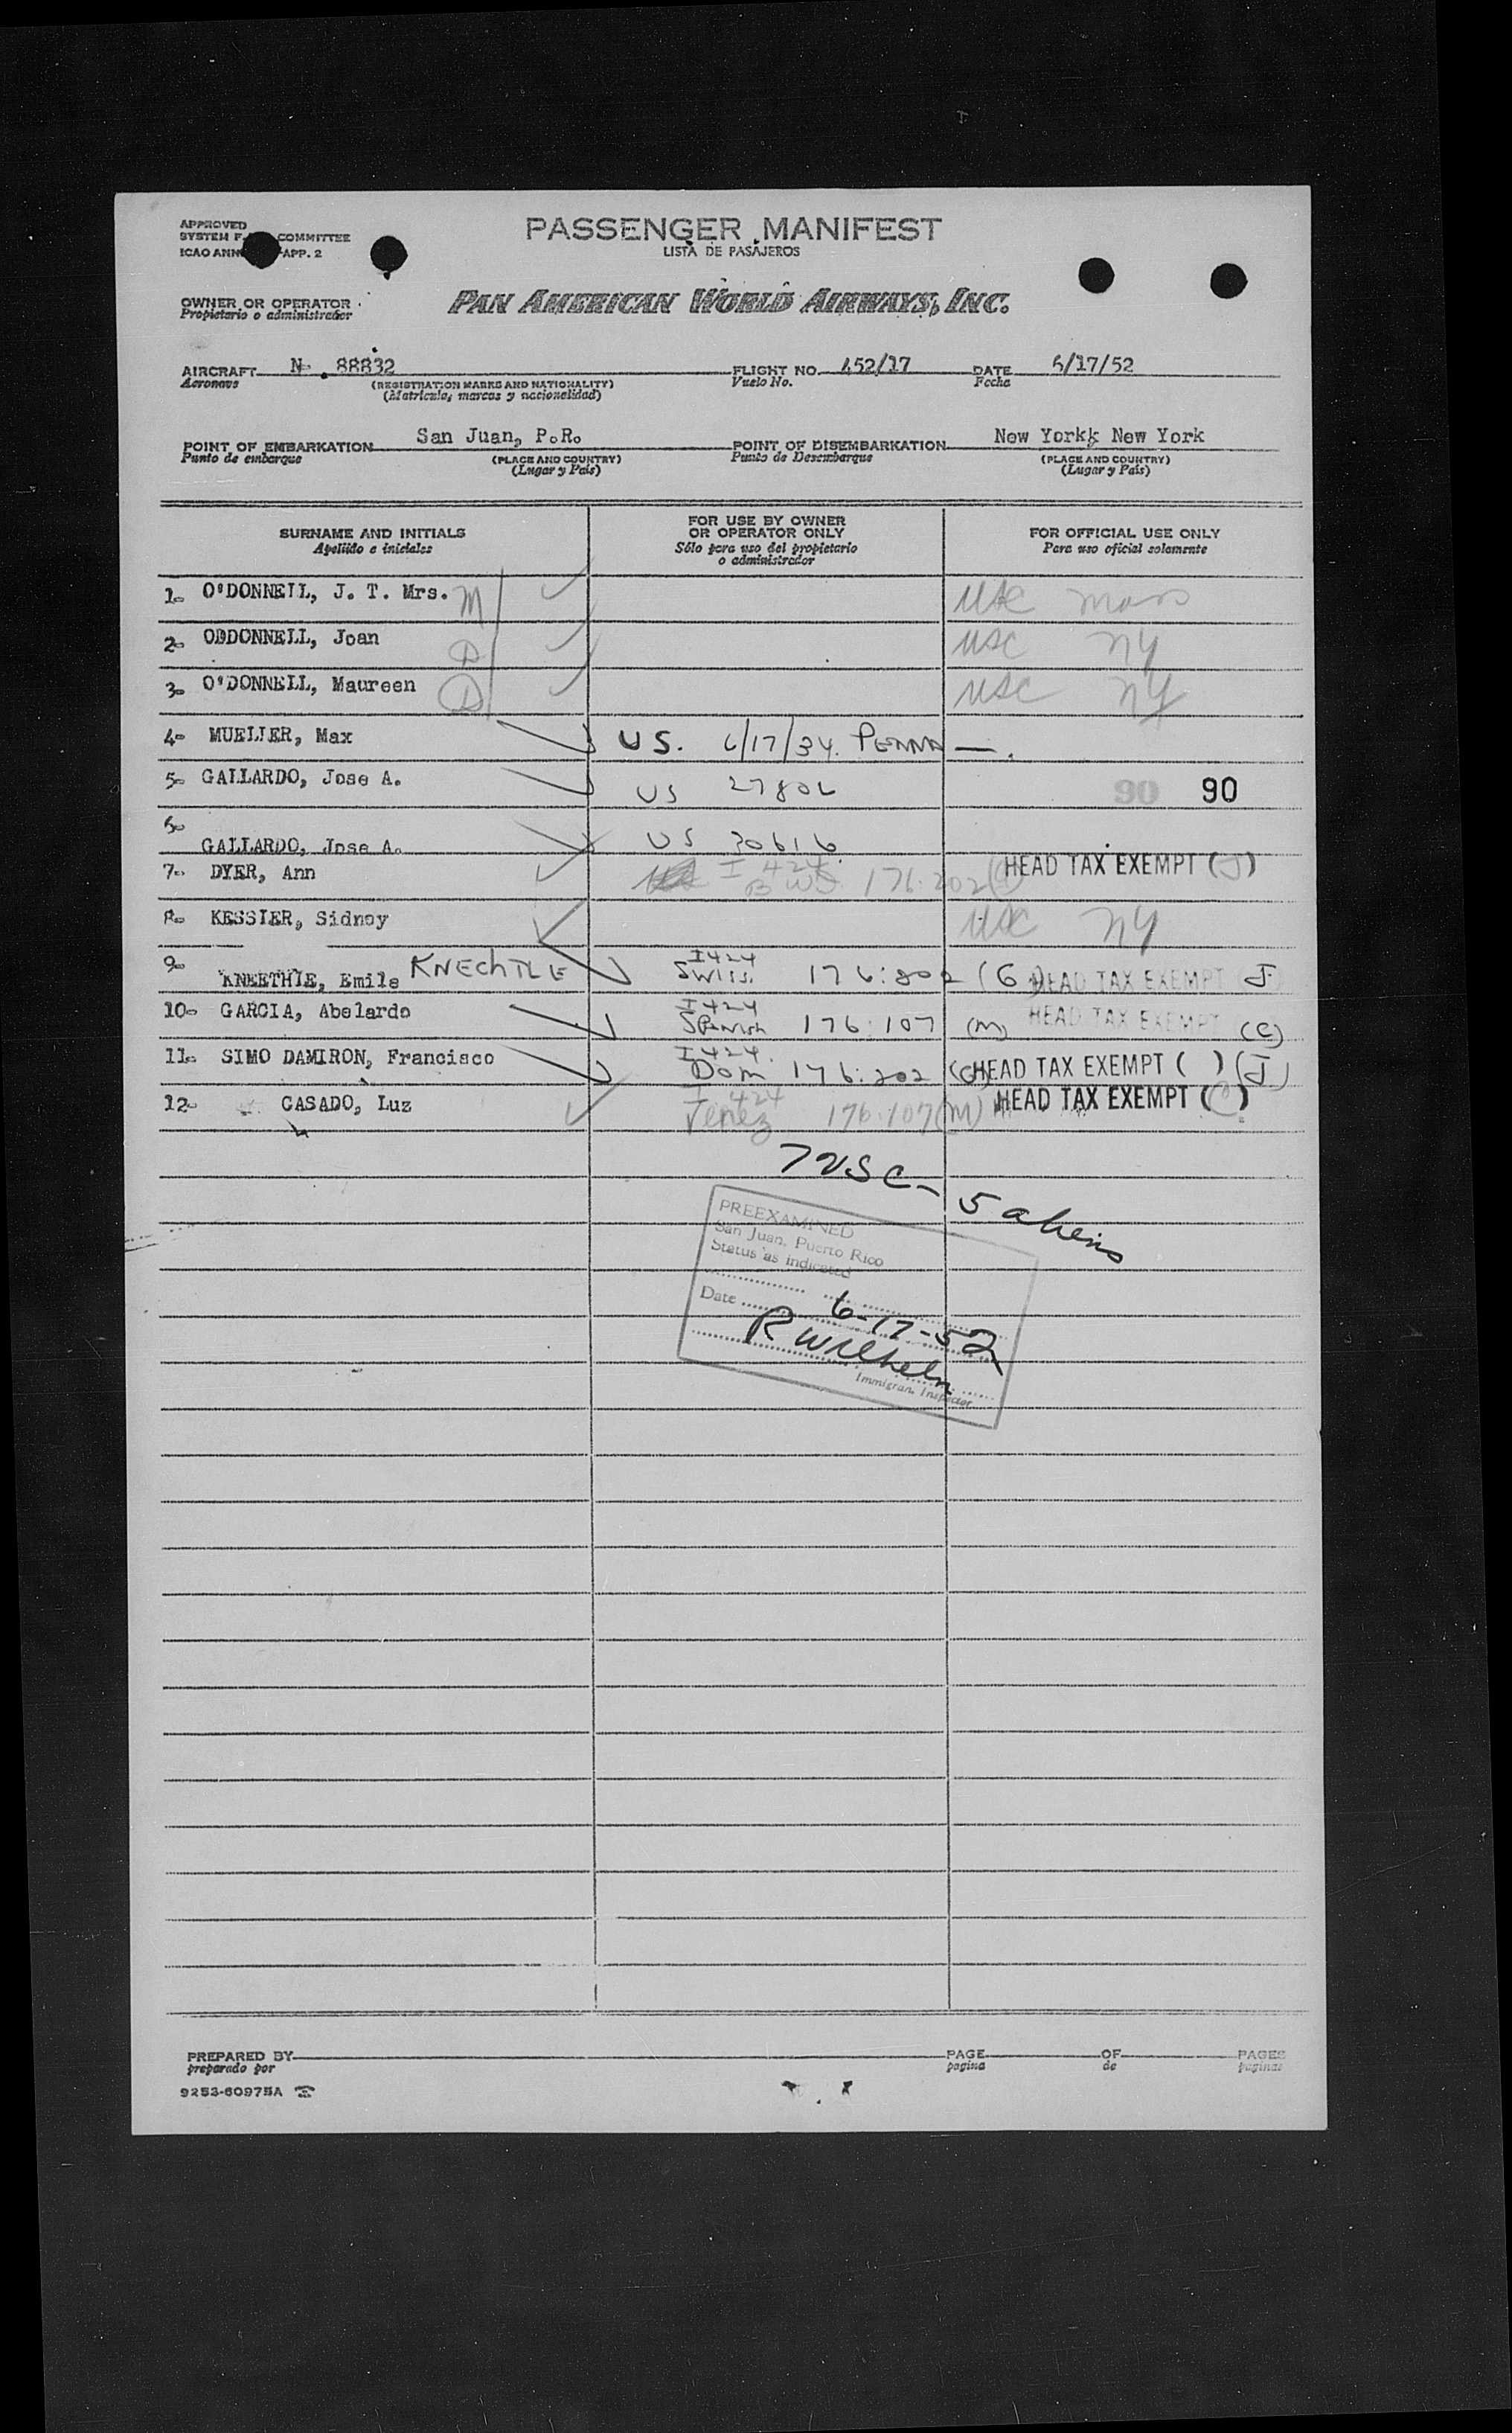 APPROVED
SYSTEM F COMMITTEE
ICAO ANN APP. 2
PASSENGER MANIFEST
LISTA DE PASAJEROS
OWNER OR OPERATOR
Propietario o administrador
PAN AMERICAN WORLD AIRWAYS, INC.
AIRCRAFT N. 88832 FLIGHT NO. 452/17 DATE 6/17/52
Aeronave (REGISTRATION MARKS AND NATIONALITY) Vuelo No. Fecha
(Matrícula, marcas y nacionalidad)
POINT OF EMBARKATION San Juan, P.R. POINT OF DISEMBARKATION New Yorkk New York
Punto de embarque (PLACE AND COUNTRY) Punto de Desembarque (PLACE AND COUNTRY)
(Lugar y País) (Lugar y País)
SURNAME AND INITIALS FOR USE BY OWNER OR OPERATOR ONLY FOR OFFICIAL USE ONLY
Apellido e iniciales Sólo para uso del propietario o administrador Para uso oficial solamente
1- O'DONNELL, J. T. Mrs. M USC Mass
2- ODDONNELL, Joan D USC NY
3- O'DONNELL, Maureen D USC NY
4- MUELLER, Max US. 6/17/34. PENNA —.
5- GALLARDO, Jose A. US 27806 90 90
6-
GALLARDO, Jose A. US 30616
7- DYER, Ann I 424 BWI 176.202 HEAD TAX EXEMPT (J)
8- KESSLER, Sidney USC NY
9- KNEETHLE, Emile KNECHTLE I424 Swiss. 176:202 (G) HEAD TAX EXEMPT J
10- GARCIA, Abelardo I424 Spanish 176:107 (M) HEAD TAX EXEMPT (C)
11- SIMO DAMIRON, Francisco I424. Dom 176:202 (G) HEAD TAX EXEMPT ( ) (J)
12- CASADO, Luz I 424 Venez 176.107(M) HEAD TAX EXEMPT (C)
7 USC - 5 aliens
PREEXAMINED
San Juan, Puerto Rico
Status as indicated
Date 6-17-52
R Wilhelm
Immigran. Inspector
PREPARED BY PAGE OF PAGES
preparado por pagina de paginas
9253-60975A